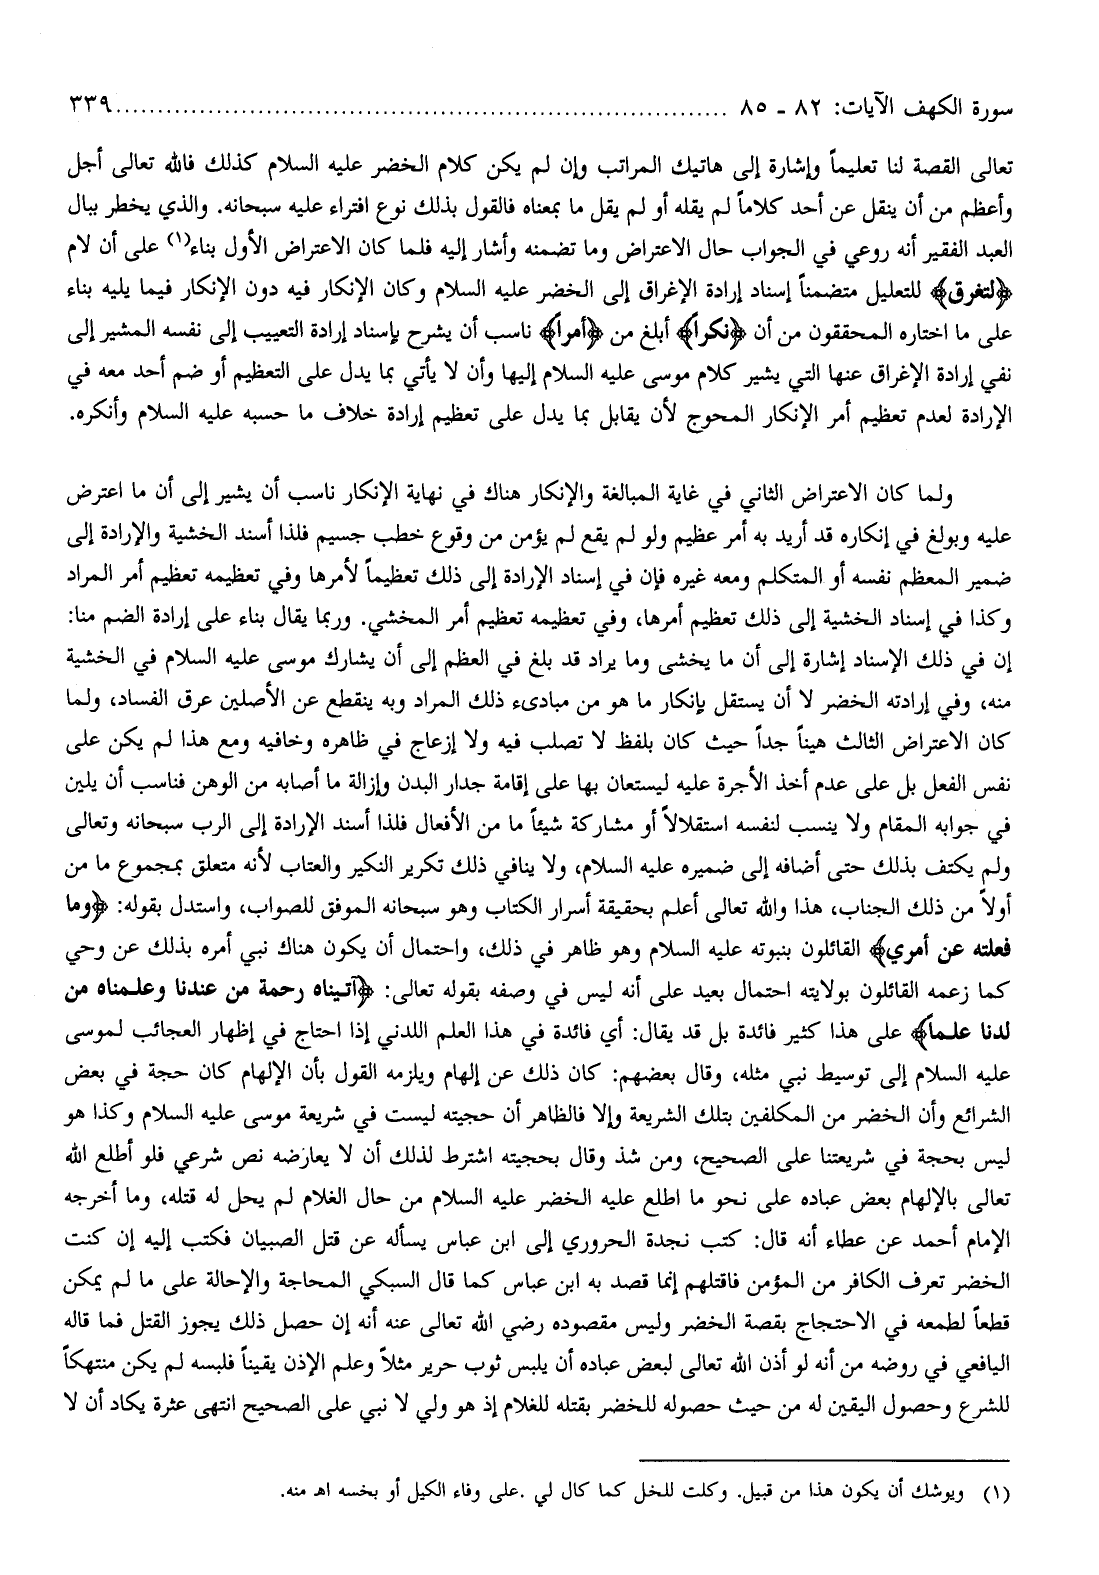 سورة الكهف الآيات: ٨٢ ـ ٨٥ ........................................................................... ٣٣٩
تعالى القصة لنا تعليماً وإشارة إلى هاتيك المراتب وإن لم يكن كلام الخضر عليه السلام كذلك فالله تعالى أجل
وأعظم من أن ينقل عن أحد كلاماً لم يقله أو لم يقل ما بمعناه فالقول بذلك نوع افتراء عليه سبحانه. والذي يخطر ببال
العبد الفقير أنه روعي في الجواب حال الاعتراض وما تضمنه وأشار إليه فلما كان الاعتراض الأول بناء(١) على أن لام
﴿لتغرق﴾ للتعليل متضمناً إسناد إرادة الإغراق إلى الخضر عليه السلام وكان الإنكار فيه دون الإنكار فيما يليه بناء
على ما اختاره المحققون من أن ﴿نكراً﴾ أبلغ من ﴿أمراً﴾ ناسب أن يشرح بإسناد إرادة التعييب إلى نفسه المشير إلى
نفي إرادة الإغراق عنها التي يشير كلام موسى عليه السلام إليها وأن لا يأتي بما يدل على التعظيم أو ضم أحد معه في
الإرادة لعدم تعظيم أمر الإنكار المحوج لأن يقابل بما يدل على تعظيم إرادة خلاف ما حسبه عليه السلام وأنكره.
ولما كان الاعتراض الثاني في غاية المبالغة والإنكار هناك في نهاية الإنكار ناسب أن يشير إلى أن ما اعترض
عليه وبولغ في إنكاره قد أريد به أمر عظيم ولو لم يقع لم يؤمن من وقوع خطب جسيم فلذا أسند الخشية والإرادة إلى
ضمير المعظم نفسه أو المتكلم ومعه غيره فإن في إسناد الإرادة إلى ذلك تعظيماً لأمرها وفي تعظيمه تعظيم أمر المراد
وكذا في إسناد الخشية إلى ذلك تعظيم أمرها، وفي تعظيمه تعظيم أمر المخشي. وربما يقال بناء على إرادة الضم منا:
إن في ذلك الإسناد إشارة إلى أن ما يخشى وما يراد قد بلغ في العظم إلى أن يشارك موسى عليه السلام في الخشية
منه، وفي إرادته الخضر لا أن يستقل بإنكار ما هو من مبادىء ذلك المراد وبه ينقطع عن الأصلين عرق الفساد، ولما
كان الاعتراض الثالث هيناً جداً حيث كان بلفظ لا تصلب فيه ولا إزعاج في ظاهره وخافيه ومع هذا لم يكن على
نفس الفعل بل على عدم أخذ الأجرة عليه ليستعان بها على إقامة جدار البدن وإزالة ما أصابه من الوهن فناسب أن يلين
في جوابه المقام ولا ينسب لنفسه استقلالاً أو مشاركة شيئاً ما من الأفعال فلذا أسند الإرادة إلى الرب سبحانه وتعالى
ولم يكتف بذلك حتى أضافه إلى ضميره عليه السلام، ولا ينافي ذلك تكرير النكير والعتاب لأنه متعلق بمجموع ما من
أولاً من ذلك الجناب، هذا والله تعالى أعلم بحقيقة أسرار الكتاب وهو سبحانه الموفق للصواب، واستدل بقوله: ﴿وما
فعلته عن أمري﴾ القائلون بنبوته عليه السلام وهو ظاهر في ذلك، واحتمال أن يكون هناك نبي أمره بذلك عن وحي
كما زعمه القائلون بولايته احتمال بعيد على أنه ليس في وصفه بقوله تعالى: ﴿آتيناه رحمة من عندنا وعلمناه من
لدنا علماً﴾ على هذا كثير فائدة بل قد يقال: أي فائدة في هذا العلم اللدني إذا احتاج في إظهار العجائب لموسى
عليه السلام إلى توسيط نبي مثله، وقال بعضهم: كان ذلك عن إلهام ويلزمه القول بأن الإلهام كان حجة في بعض
الشرائع وأن الخضر من المكلفين بتلك الشريعة وإلا فالظاهر أن حجيته ليست في شريعة موسى عليه السلام وكذا هو
ليس بحجة في شريعتنا على الصحيح، ومن شذ وقال بحجيته اشترط لذلك أن لا يعارضه نص شرعي فلو أطلع الله
تعالى بالإلهام بعض عباده على نحو ما اطلع عليه الخضر عليه السلام من حال الغلام لم يحل له قتله، وما أخرجه
الإمام أحمد عن عطاء أنه قال: كتب نجدة الحروري إلى ابن عباس يسأله عن قتل الصبيان فكتب إليه إن كنت
الخضر تعرف الكافر من المؤمن فاقتلهم إنما قصد به ابن عباس كما قال السبكي المحاجة والإحالة على ما لم يمكن
قطعاً لطمعه في الاحتجاج بقصة الخضر وليس مقصوده رضي الله تعالى عنه أنه إن حصل ذلك يجوز القتل فما قاله
اليافعي في روضه من أنه لو أذن الله تعالى لبعض عباده أن يلبس ثوب حرير مثلاً وعلم الإذن يقيناً فلبسه لم يكن منتهكاً
للشرع وحصول اليقين له من حيث حصوله للخضر بقتله للغلام إذ هو ولي لا نبي على الصحيح انتهى عثرة يكاد أن لا
(١) ويوشك أن يكون هذا من قبيل. وكلت للخل كما كال لي .على وفاء الكيل أو بخسه اهـ منه.